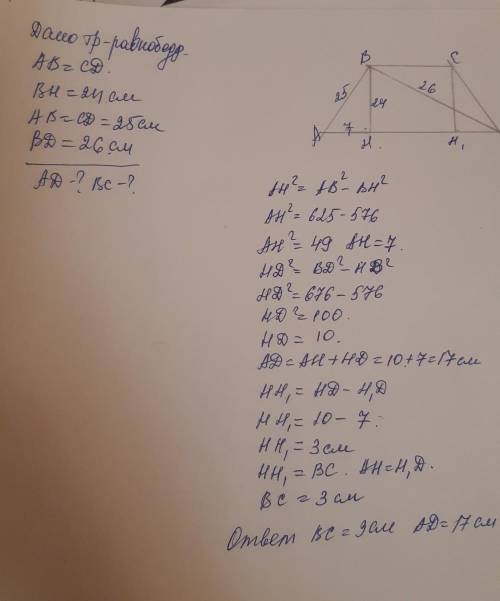 Дано тр-равнобедр.
AB = CD.
BH = 24 см
AB = CD = 25 см
BD = 26 см
AD - ? BC - ?
B C
25 24 26
A 7 H. H₁
AH² = AB² - BH²
AH² = 625 - 576
AH² = 49 AH = 7.
HD² = BD² - HB²
HD² = 676 - 576
HD² = 100.
HD = 10.
AD = AH + HD = 10 + 7 = 17 см
HH₁ = HD - H₁D
HH₁ = 10 - 7.
HH₁ = 3 см
HH₁ = BC. AH = H₁D.
BC = 3 см
Ответ BC = 9 см AD = 17 см